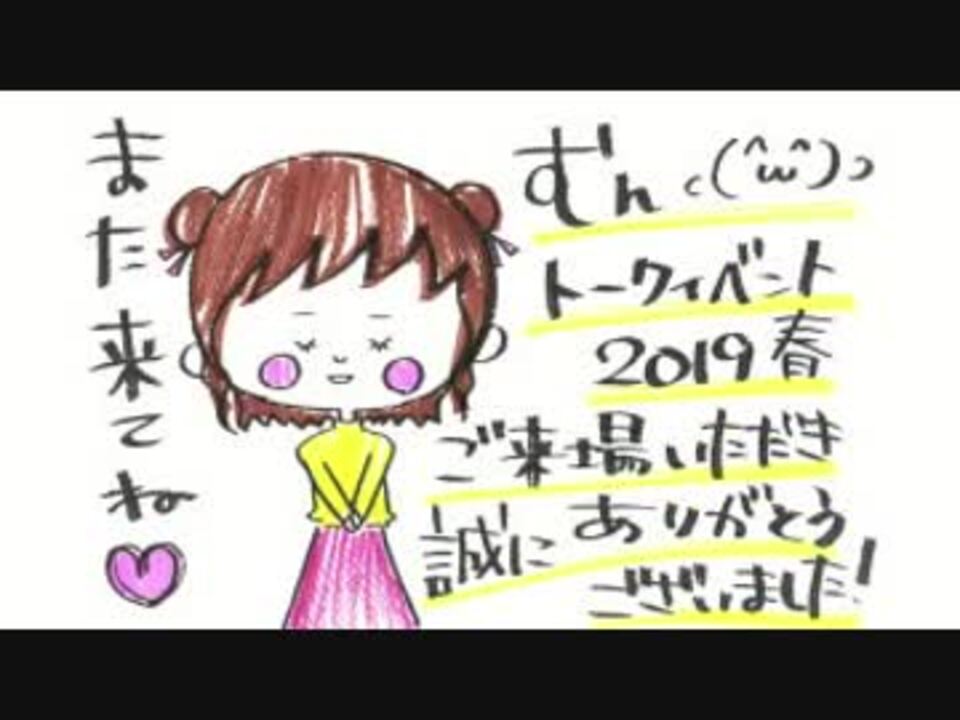 また来てね
ずん ╰(^ω^)╯
トークイベント
2019春
ご来場いただき
誠にありがとう
ございました!